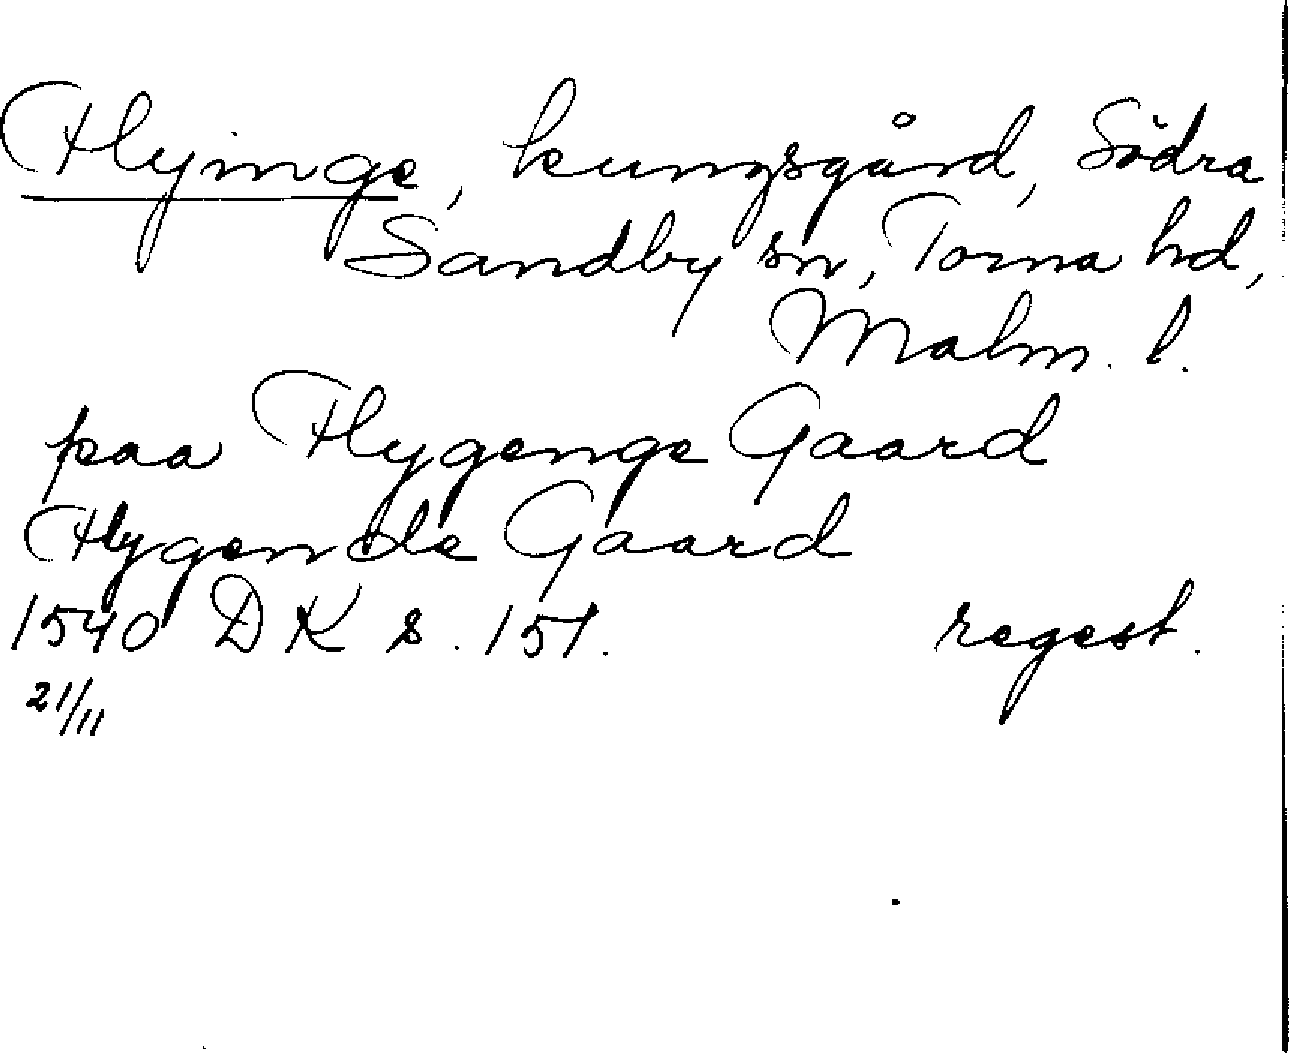 Flyinge, kungsgård, Södra
Sandby sn, Torna hd,
Malm. l.
paa Flygenge Gaard
Flygende Gaard
1540 DK s. 151. regest.
21/11